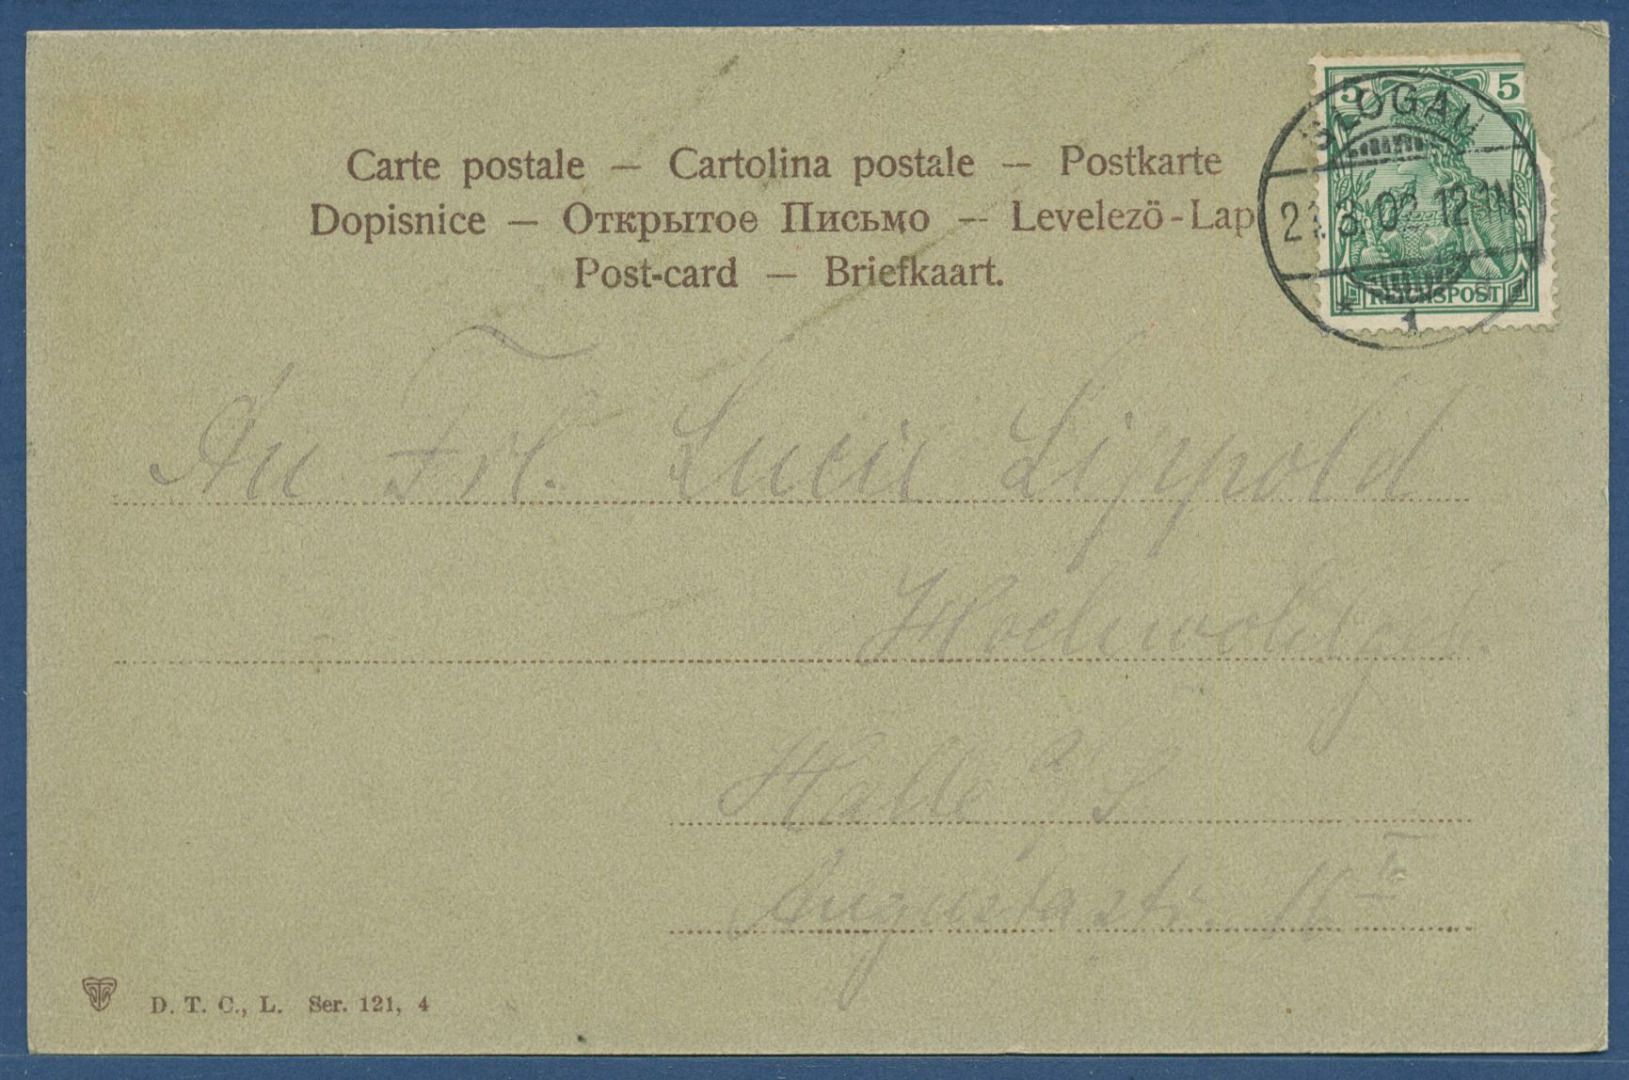 Carte postale — Cartolina postale — Postkarte
Dopisnice — Открытое Письмо — Levelezö-Lap
Post-card — Briefkaart.
5 5
GLOGAU
21.3.02.12-1N
* 1
REICHSPOST
An Frl. Lucie Lippold
Hochwohlgeb.
Halle a/S.
Augustastr.
D. T. C., L. Ser. 121, 4